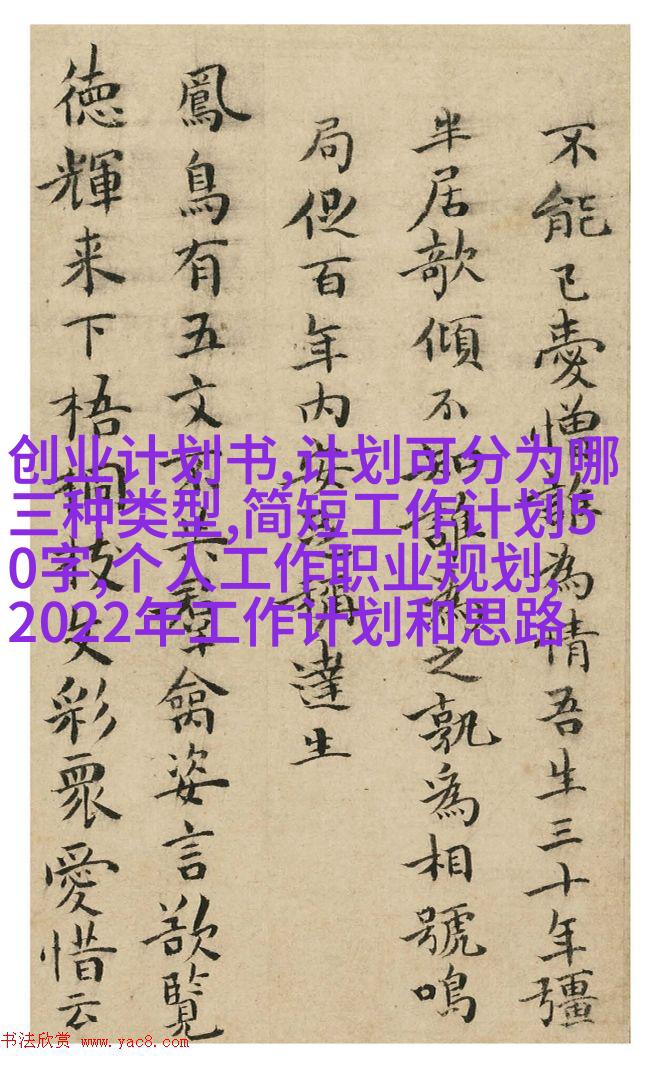 不能已憂憎為情吾生三十年彊
半居欹傾不知誰為之孰為相號鳴
局促百年内安稱達生
鳳鳥有五文羣禽姿言欲覽
徳輝来下梧桐枝文彩眾愛惜云
创业计划书,计划可分为哪
三种类型,简短工作计划5
0字,个人工作职业规划,
2022年工作计划和思路
书法欣赏 www.yac8.com